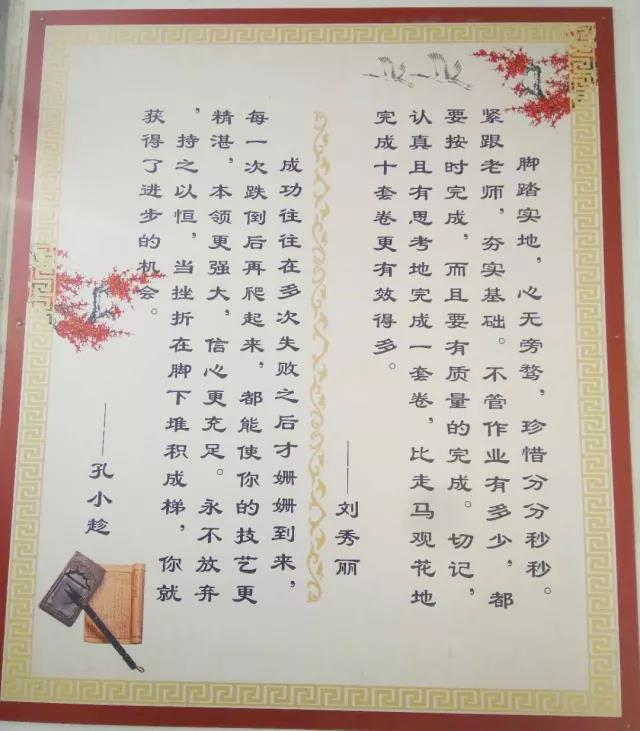 脚踏实地，心无旁骛，珍惜分分秒秒。
紧跟老师，夯实基础。不管作业有多少，都
要按时完成，而且要有质量的完成。切记，
认真且有思考地完成一套卷，比走马观花地
完成十套卷更有效得多。
——刘秀丽
成功往往在多次失败之后才姗姗到来，
每一次跌倒后再爬起来，都能使你的技艺更
精湛，本领更强大，信心更充足。永不放弃
，持之以恒，当挫折在脚下堆积成梯，你就
获得了进步的机会。
——孔小趁